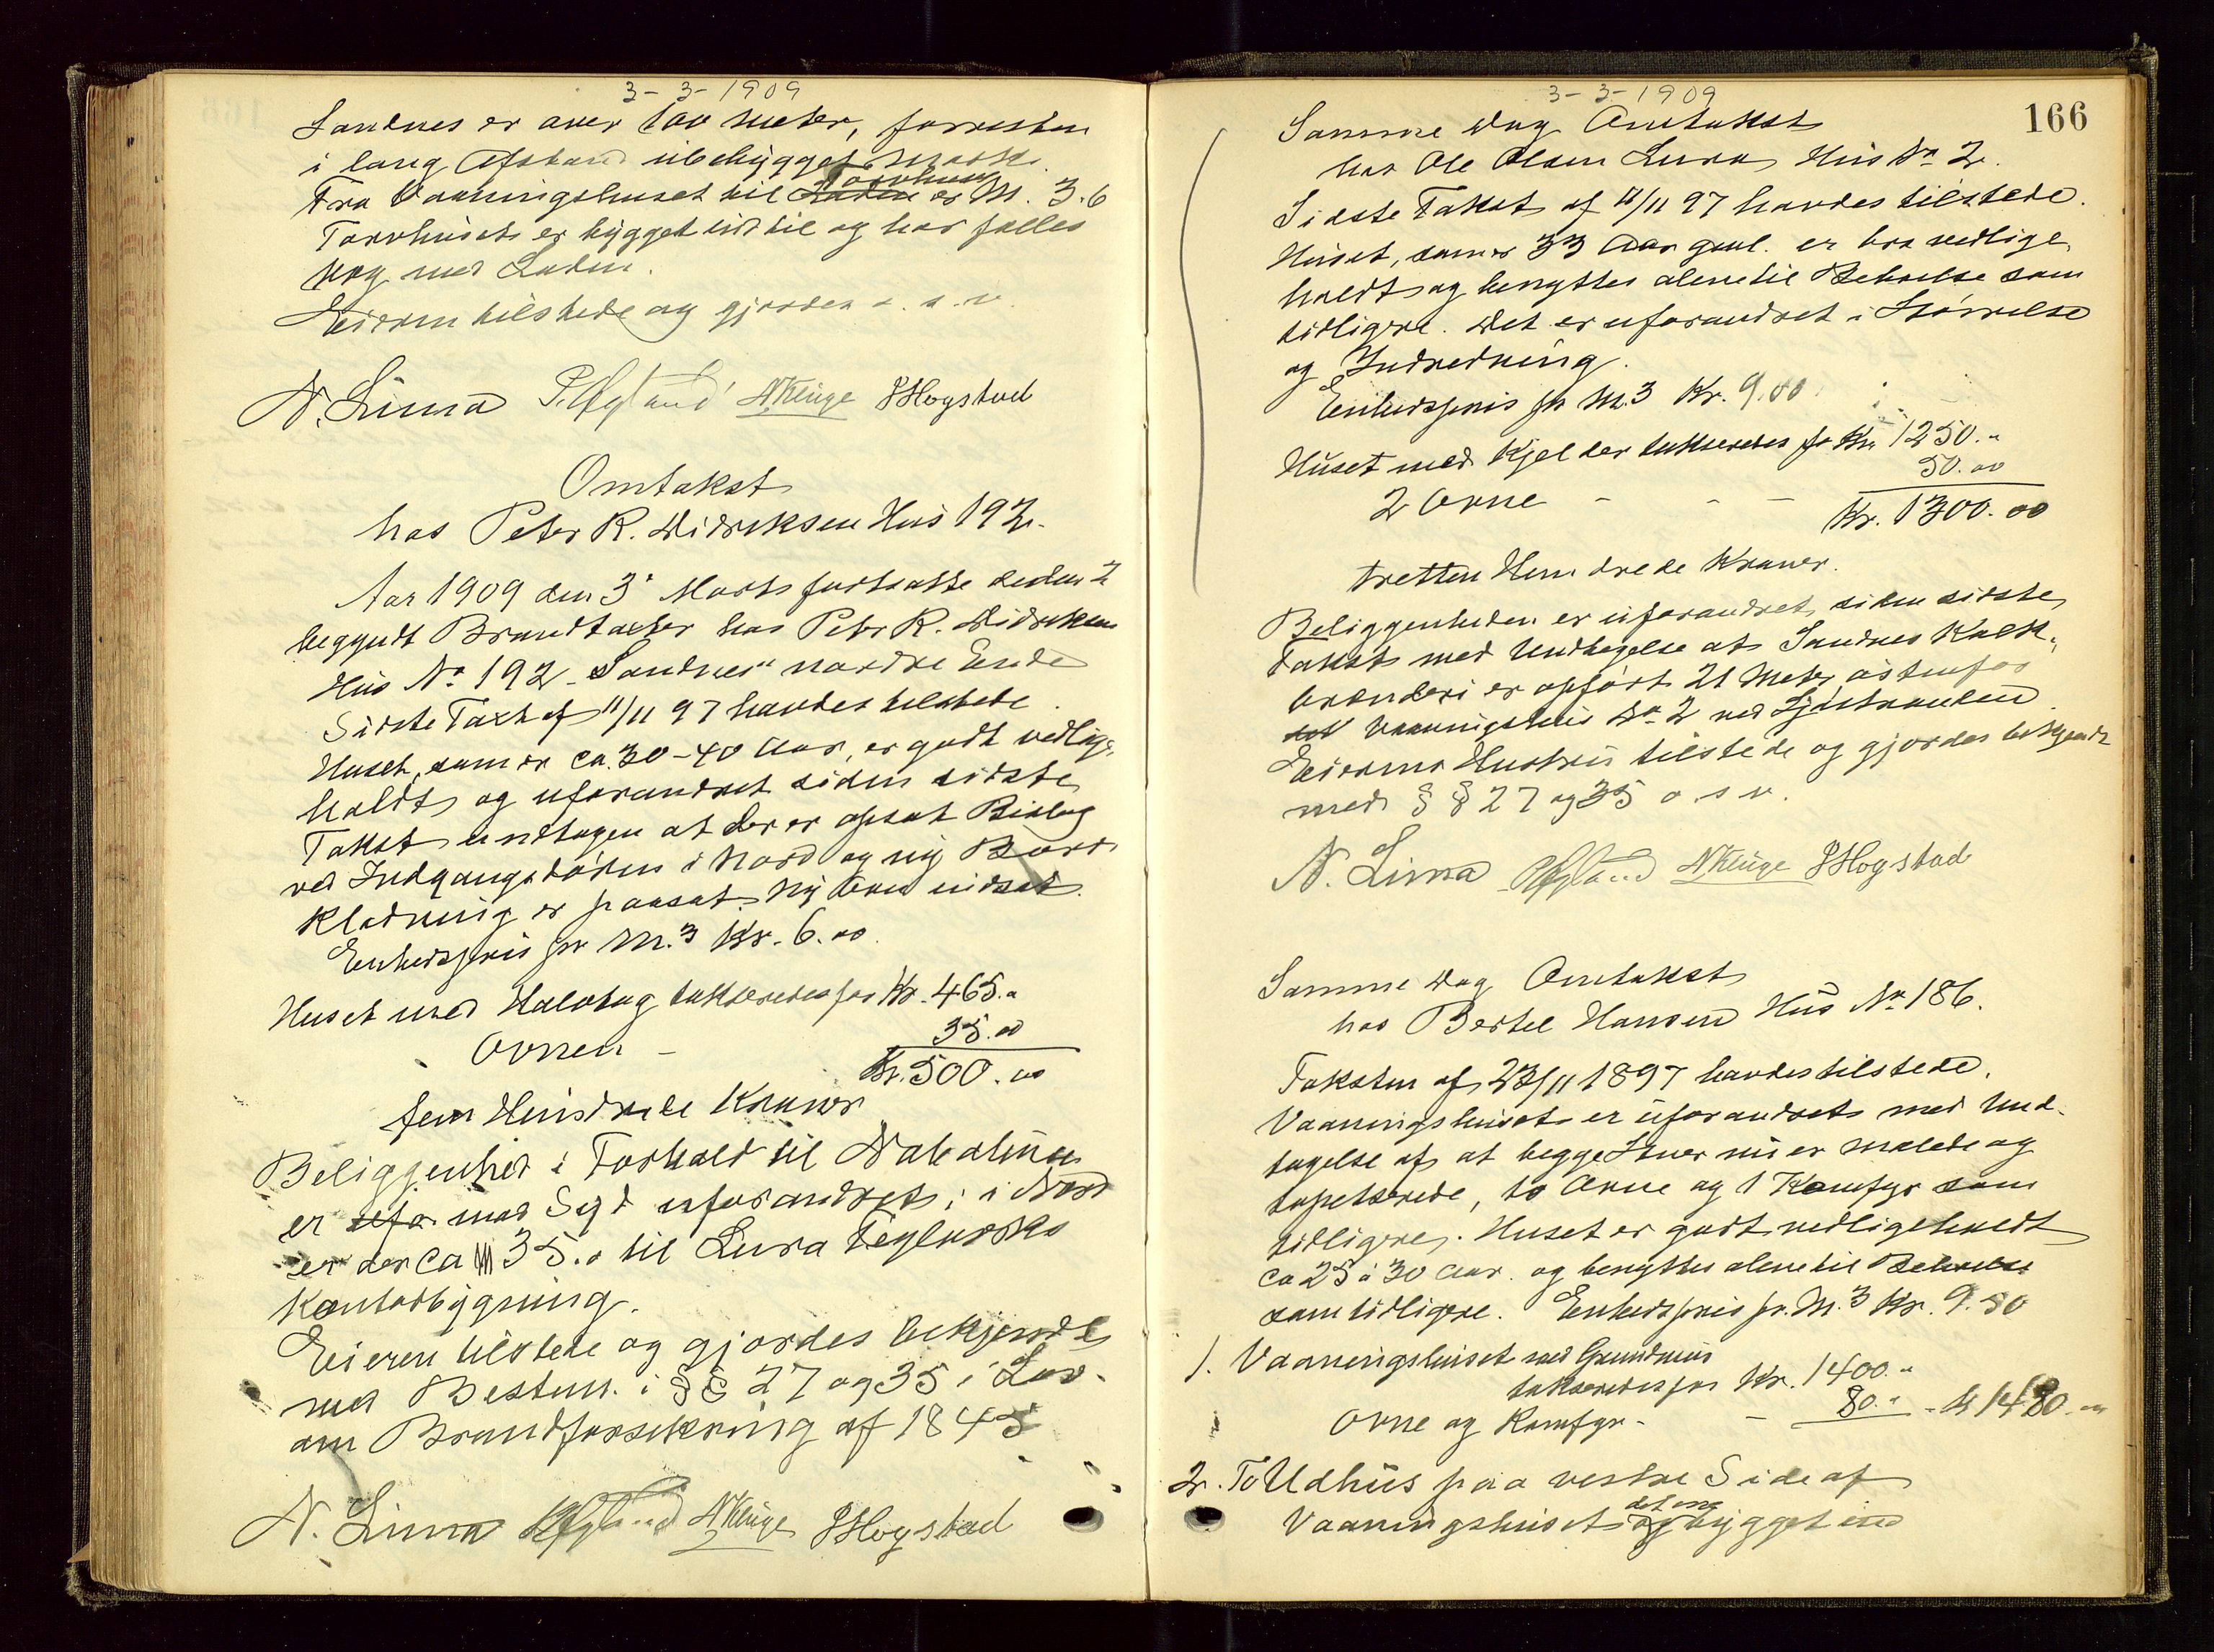 3-3-1909
Sandnes er over 100 Meter, forresten
i lang Afstand ubebygget Mark.
Torvhuset
Fra Vaaningshuset til Laden er M. 3.6
Torvhuset er bygget ind til og har fælles
Væg med Laden.
Eieren tilstede og gjordes o. s. v.
N. Lima N Kluge Hogstad
Omtakst
hos Peter R. Didriksen Hus 192.
Aar 1909 den 3' Marts fortsatte den
begyndt Brandtaxter hos Peter R. Didriksen
Hus No 192 Sandnes nordre Ende
Sidste Taxt af 11/11 97 havdes tilstede.
Huset, som er ca. 30-40 Aar, er godt vedlige-
holdt og uforandret siden sidste
Takst undtagen at der er opsat Bislag
ved Indgangsdøren i Nord og ny Bord-
klædning er paasat. Ny Ovn indsat.
Enhedspris pr M.3 Kr. 6.00.
Huset med Halvtag takseredes for Kr. 465.-
Ovnen - 35.00
Kr. 500.00
fem Hundrede Kroner
Beliggenhed i Forhold til Nabohuse
er ufo. mod Syd uforandret; i Nord
er der ca M 35.0 til Lura Teglværks
Kontorbygning.
Eieren tilstede og gjordes bekjendt
med Bestem. i §§ 27 og 35 i Lov
om Brandforsikring af 1845
N. Lima N Kluge Hogstad
3-3-1909
166
Samme Dag Omtakst
hos Ole Olsen Lura Hus No 2.
Sidste Takst af 11/11 97 havdes tilstede.
Huset, som er 33 Aar gml. er bra vedlige-
holdt og benyttes alene til Beboelse som
tidligere. Det er uforandret i Størrelse
og Indredning.
Enhedspris pr M.3 Kr. 9.00
Huset med Kjelder takseredes for Kr. 1250.-
2 Ovne - - - 50.00
Kr. 1300.00
tretten Hundrede Kroner.
Beliggenheden er uforandret siden sidste
Takst med Undtagelse at Sandnes Kalk-
brænderi er opført 21 Meter østenfor
Vaaningshus No 2 ved Sjøstranden.
Eierens Hustru tilstede og gjordes bekjendt
med §§ 27 og 35 o. s v.
N. Lima N Kluge Hogstad
Samme Dag Omtakst
hos Bertel Hansen Hus No 186.
Taksten af 23/11 1897 havdes tilstede.
Vaaningshuset er uforandret med Und-
tagelse af at begge Stuer nu er malede og
tapetserede, to Ovne og 1 Komfyr som
tidligere. Huset er godt vedligeholdt
ca 25 à 30 Aar. og benyttes alene til Beboelse
som tidligere. Enhedspris pr. M.3 Kr. 9.50
1. Vaaningshuset med Grundmur
takseredes for Kr. 1400.-
Ovne og Komfyr - - 80.- - Kr 1480.00
2. To Udhus paa vestre Side af
det ene
Vaaningshuset og bygget ind